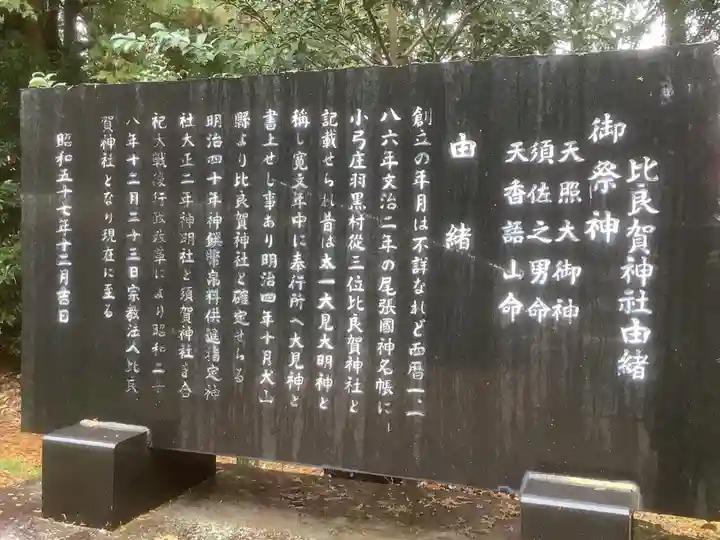 比良賀神社由緒
御祭神
天照大御神
須佐之男命
天香語山命
由緒
創立の年月は不詳なれど西暦一一
八六年文治二年の尾張國神名帳に
小弓庄羽黒村従三位比良賀神社と
記載せられ昔は太一大見大明神と
稱し寛文年中に奉行所へ大見神と
書上せし事あり明治四年十月犬山
縣より比良賀神社と確定せらる
明治四十年神饌幣帛料供進指定神
社大正二年神明社と須賀神社を合
祀大戦後行政改革により昭和二十
八年十二月二十三日宗教法人比良
賀神社となり現在に至る
昭和五十七年十二月吉日